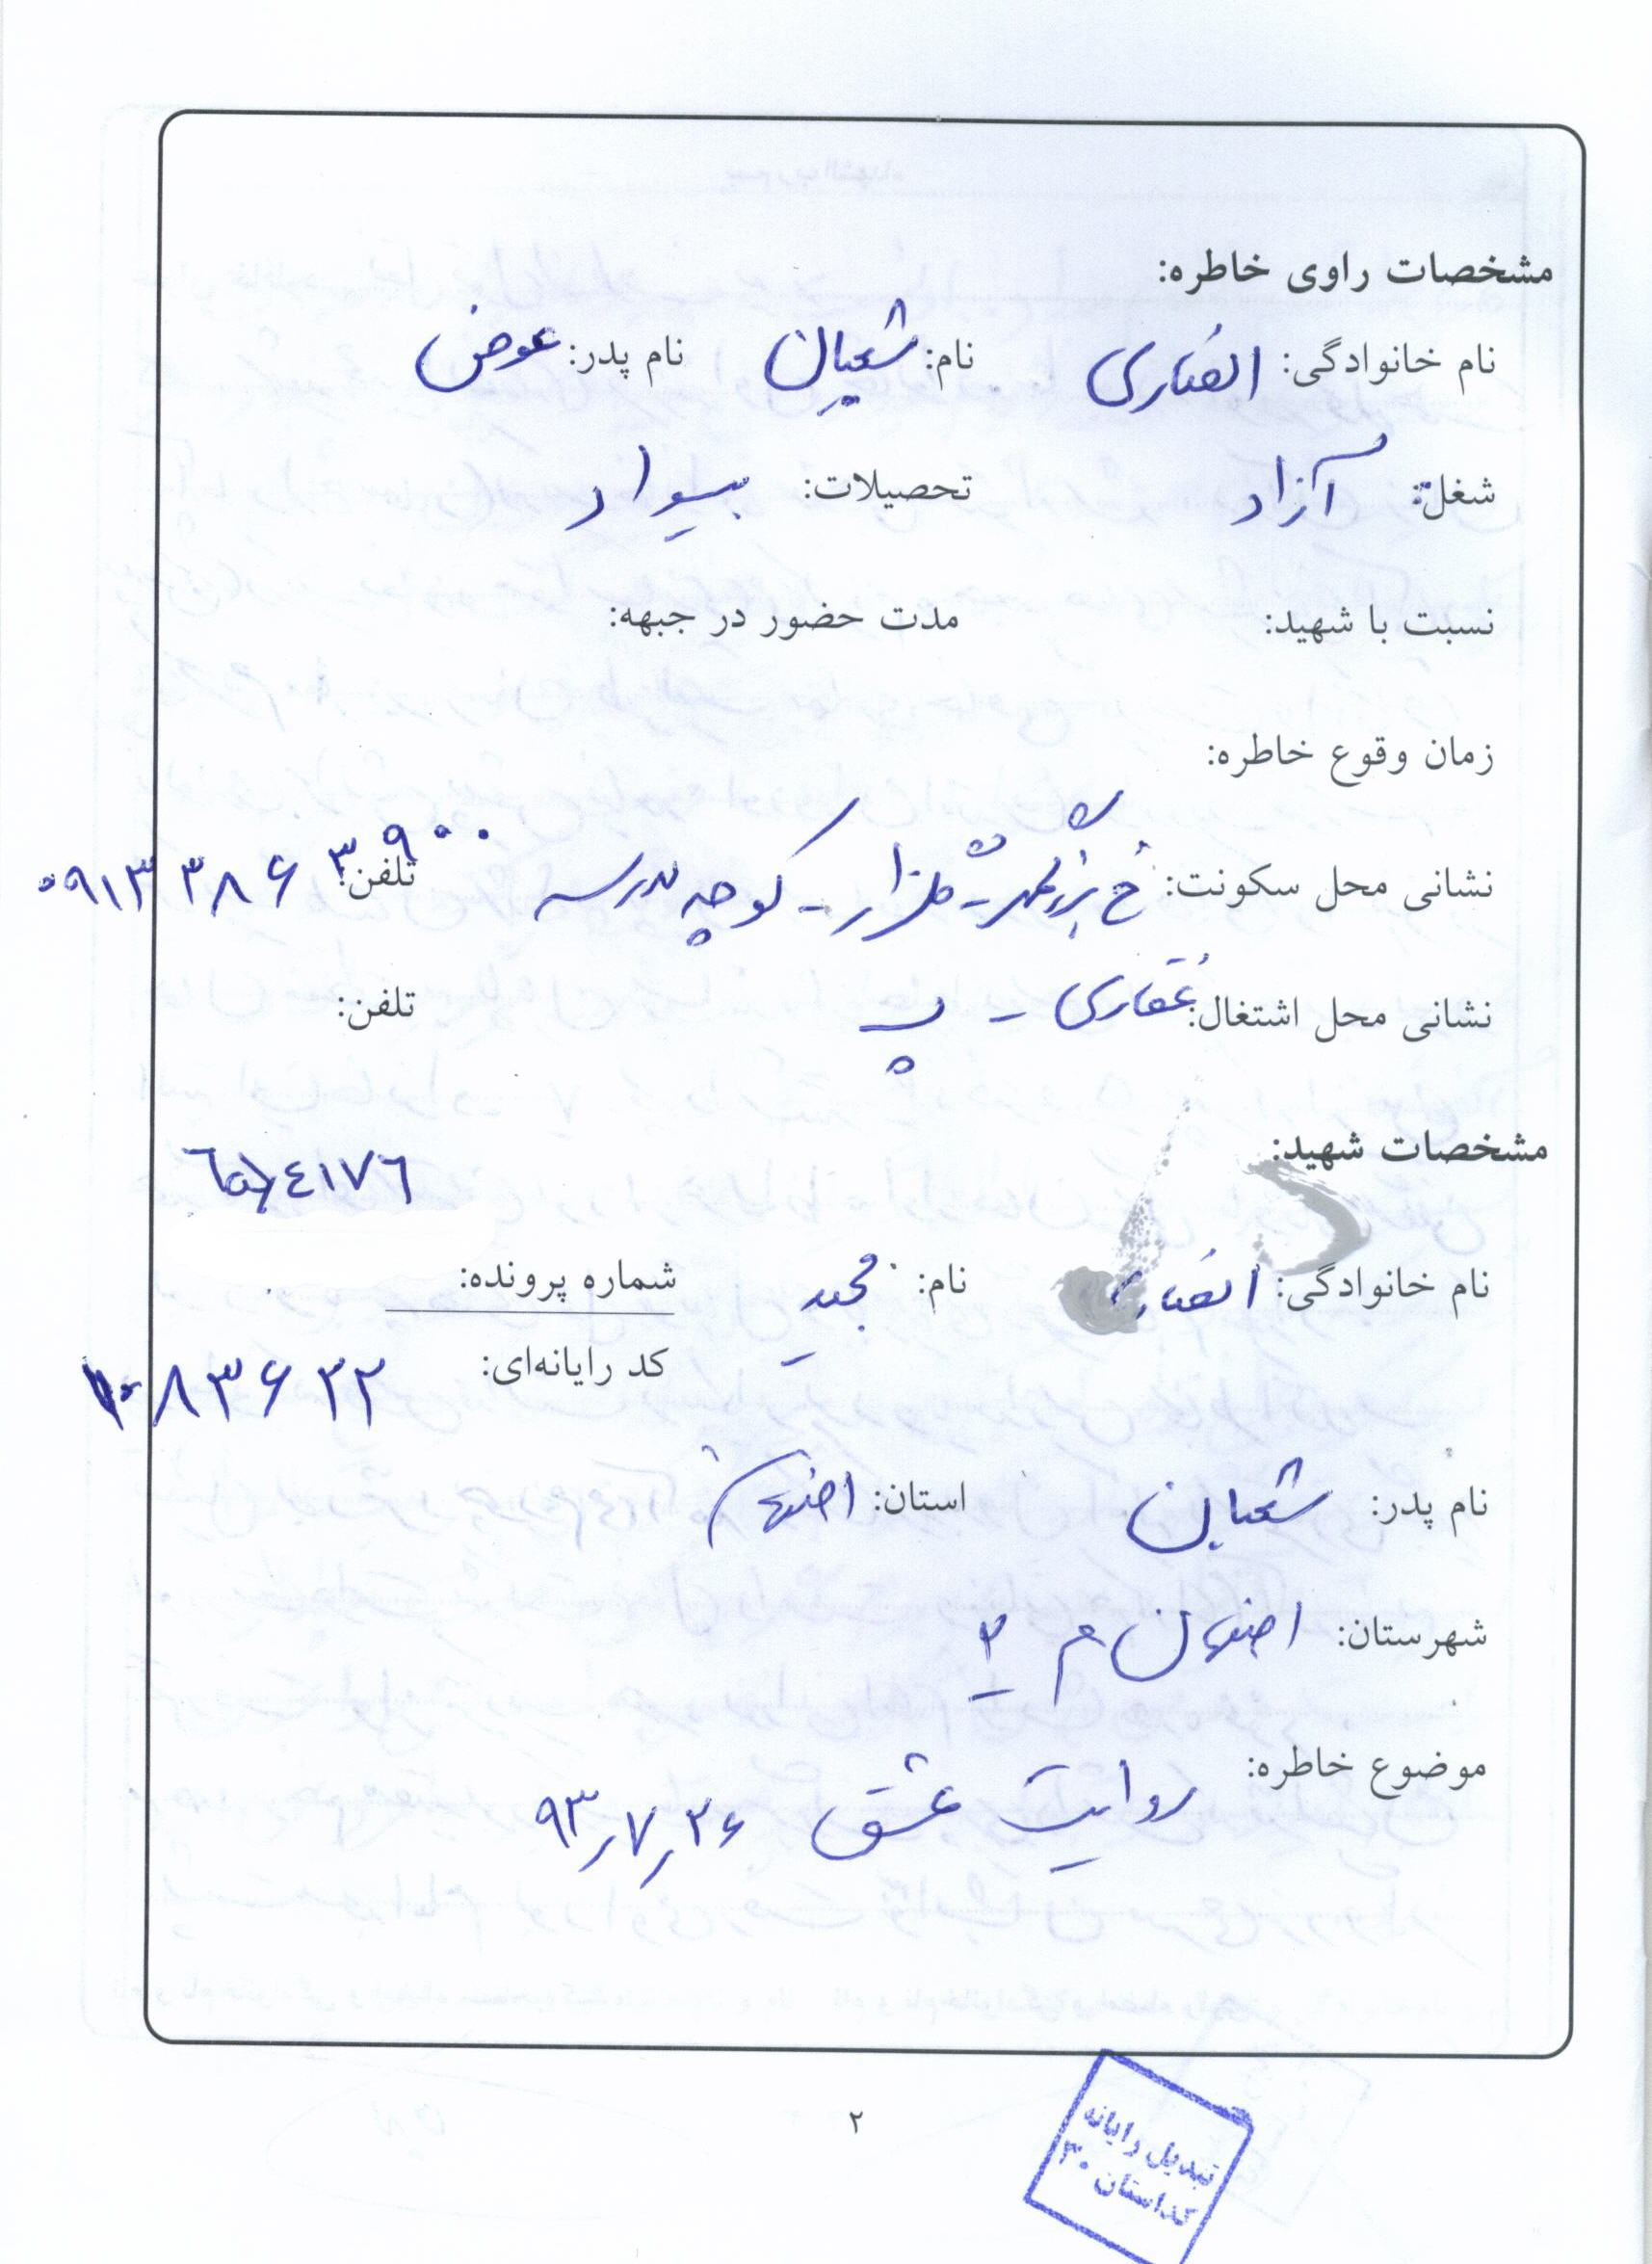 مشخصات راوی خاطره:
نام خانوادگی: انصاری نام: شعبان نام پدر: عوض
شغل: آزاد تحصیلات: بیسواد
نسبت با شهید: مدت حضور در جبهه:
زمان وقوع خاطره:
نشانی محل سکونت: خ بزرگمهر - گلزار - کوچه مدرسه تلفن: ۰۹۱۳ ۳۸۶ ۳۹۰۰
نشانی محل اشتغال: غفاری - پ تلفن:
مشخصات شهید:
نام خانوادگی: نام: مجید شماره پرونده:
کد رایانه‌ای: ۱۰۸۳۶۲۲
نام پدر: شعبان استان: اصفهان
شهرستان: اصفهان م ۲
موضوع خاطره: روایت عشق ۹۳/۷/۲۶
۲
تبدیل رایانه
کداستان ۳۰